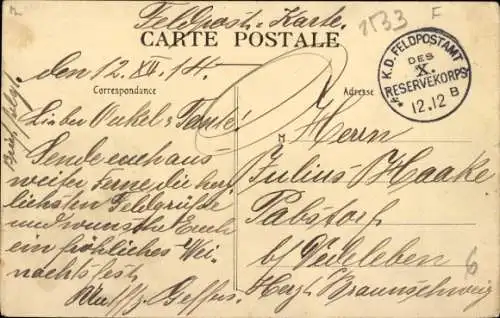 Feldpost-Karte.
1533 F
CARTE POSTALE
den 12. XII. 14.
Correspondance
Adresse
K.D. FELDPOSTAMT
DES
X.
RESERVEKORPS
12.12 B
Lieber Onkel & Tante!
Sende euch aus
weiter Ferne die herz
lichsten Feldgrüße
und wünsche Euch
ein fröhliches Wei-
nachtsfest
M
Herrn
Julius Haake
Pabstorf
b/ Vedeleben
Herzt. Braunschweig
6